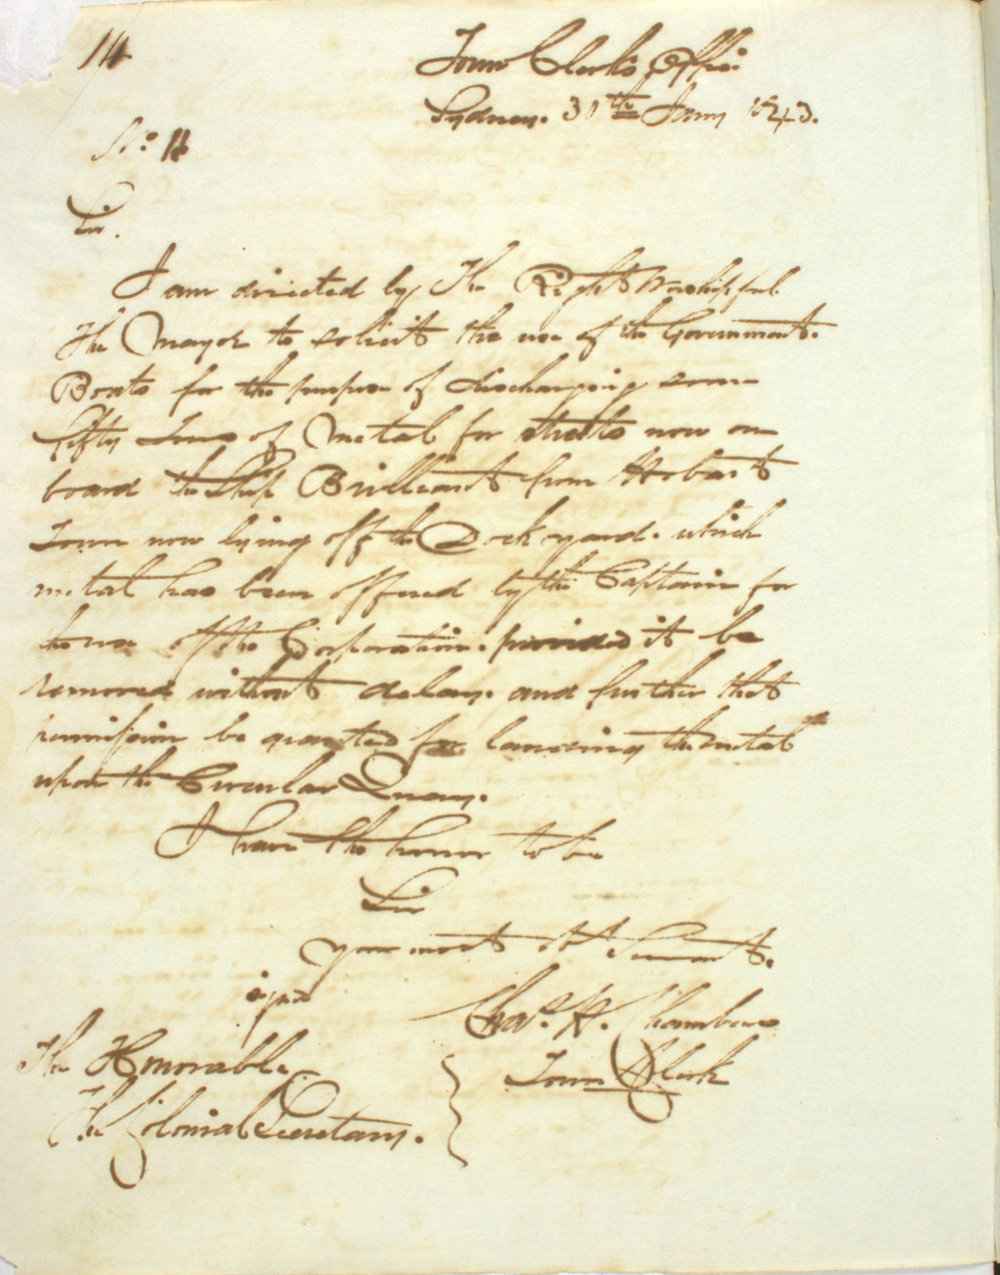 14
Town Clerk's Office
Sydney. 30th Jany 1843.
No. 14
Sir.
I am directed by The Right Worshipful
The Mayor to solicit the use of the Government.
Boats for the purpose of discharging some
fifty Tons of Metal for streets now on
board the Ship Brilliant from Hobart
Town now lying off the Dock yard. which
metal has been offered by the Captain for
the use of the Corporation. provided it be
removed without delay. and further that
permission be granted for landing the metal
upon the Circular Quay.
I have the honor to be
Sir
your most Obt Servant.
signed
Chas. H. Chambers
Town Clerk
The Honorable
The Colonial Secretary.